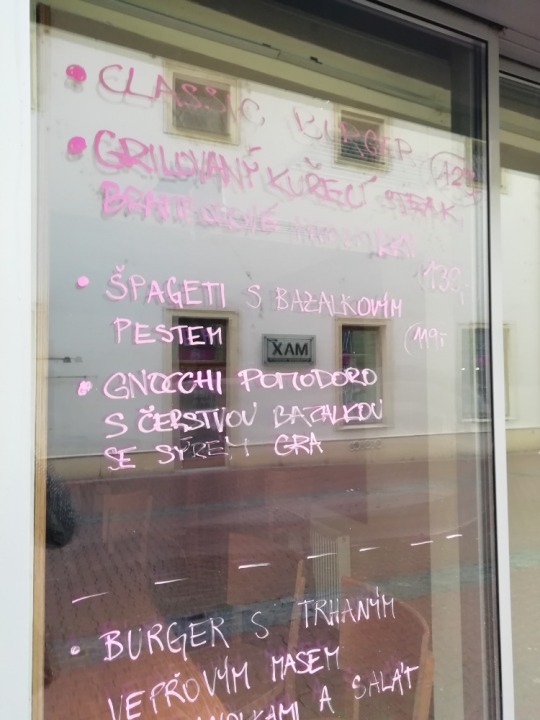 • CLASSIC BURGER
• GRILOVANÝ KUŘECÍ STEAK 129,-
139,-
• ŠPAGETI S BAZALKOVÝM
PESTEM 119,-
XAM
• GNOCCHI POMODORO
S ČERSTVOU BAZALKOU
SE SÝREM GRA
• BURGER S TRHANÝM
VEPŘOVÝM MASEM
A SALÁT